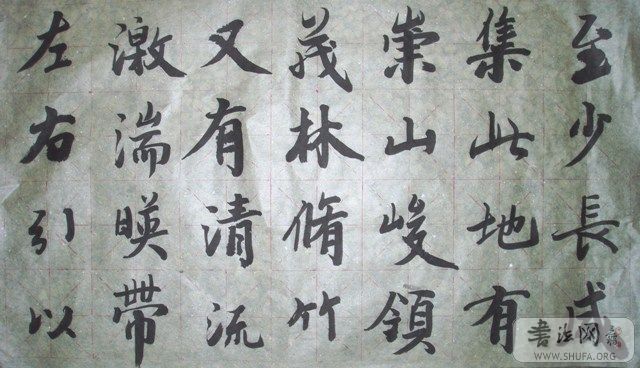 至少長咸
集此地有
崇山峻領
茂林脩竹
又有清流
激湍暎帶
左右引以
書法网
WWW.SHUFA.ORG